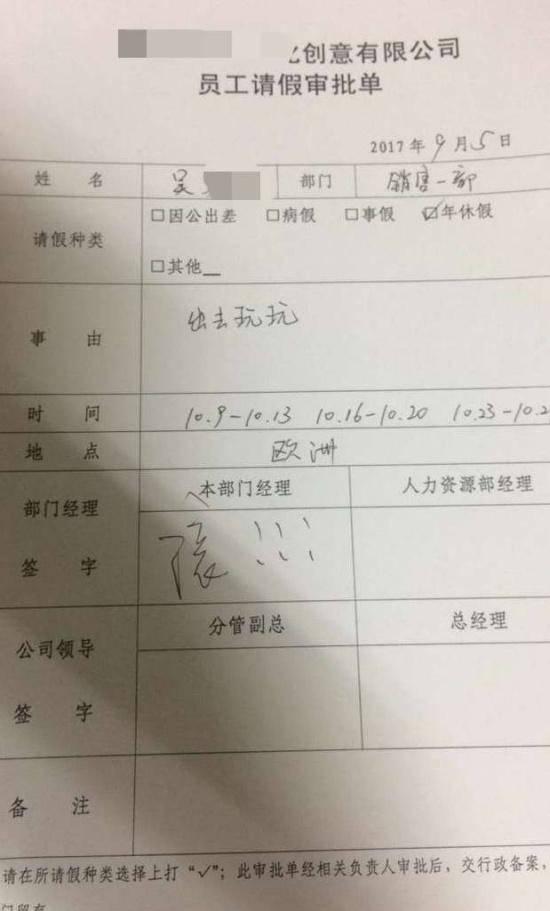 创意有限公司
员工请假审批单
2017年9月5日
姓 名 吴 部门 销售一部
请假种类 □因公出差 □病假 □事假 ☑年休假
□其他__
事 由 出去玩玩
时 间 10.9-10.13 10.16-10.20 10.23-10.2
地 点 欧洲
部门经理 本部门经理 人力资源部经理
签 字 张!!!
公司领导 分管副总 总经理
签 字
备 注
请在所请假种类选择上打“√”；此审批单经相关负责人审批后，交行政备案，
门留存